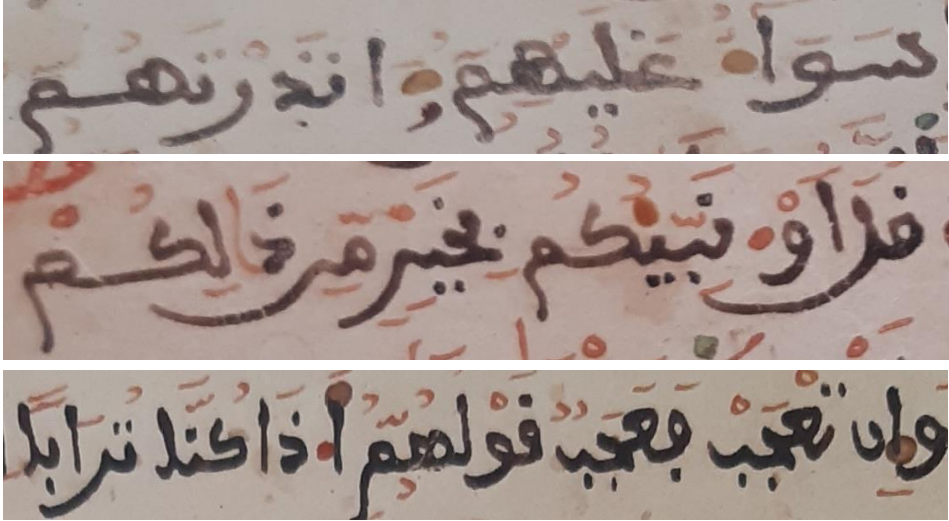 سواء عليهم ءانذرتهم
قل اؤنبيكم بخير من ذلكم
وإن تعجب فعجب قولهم أ.ذا كنا ترابا